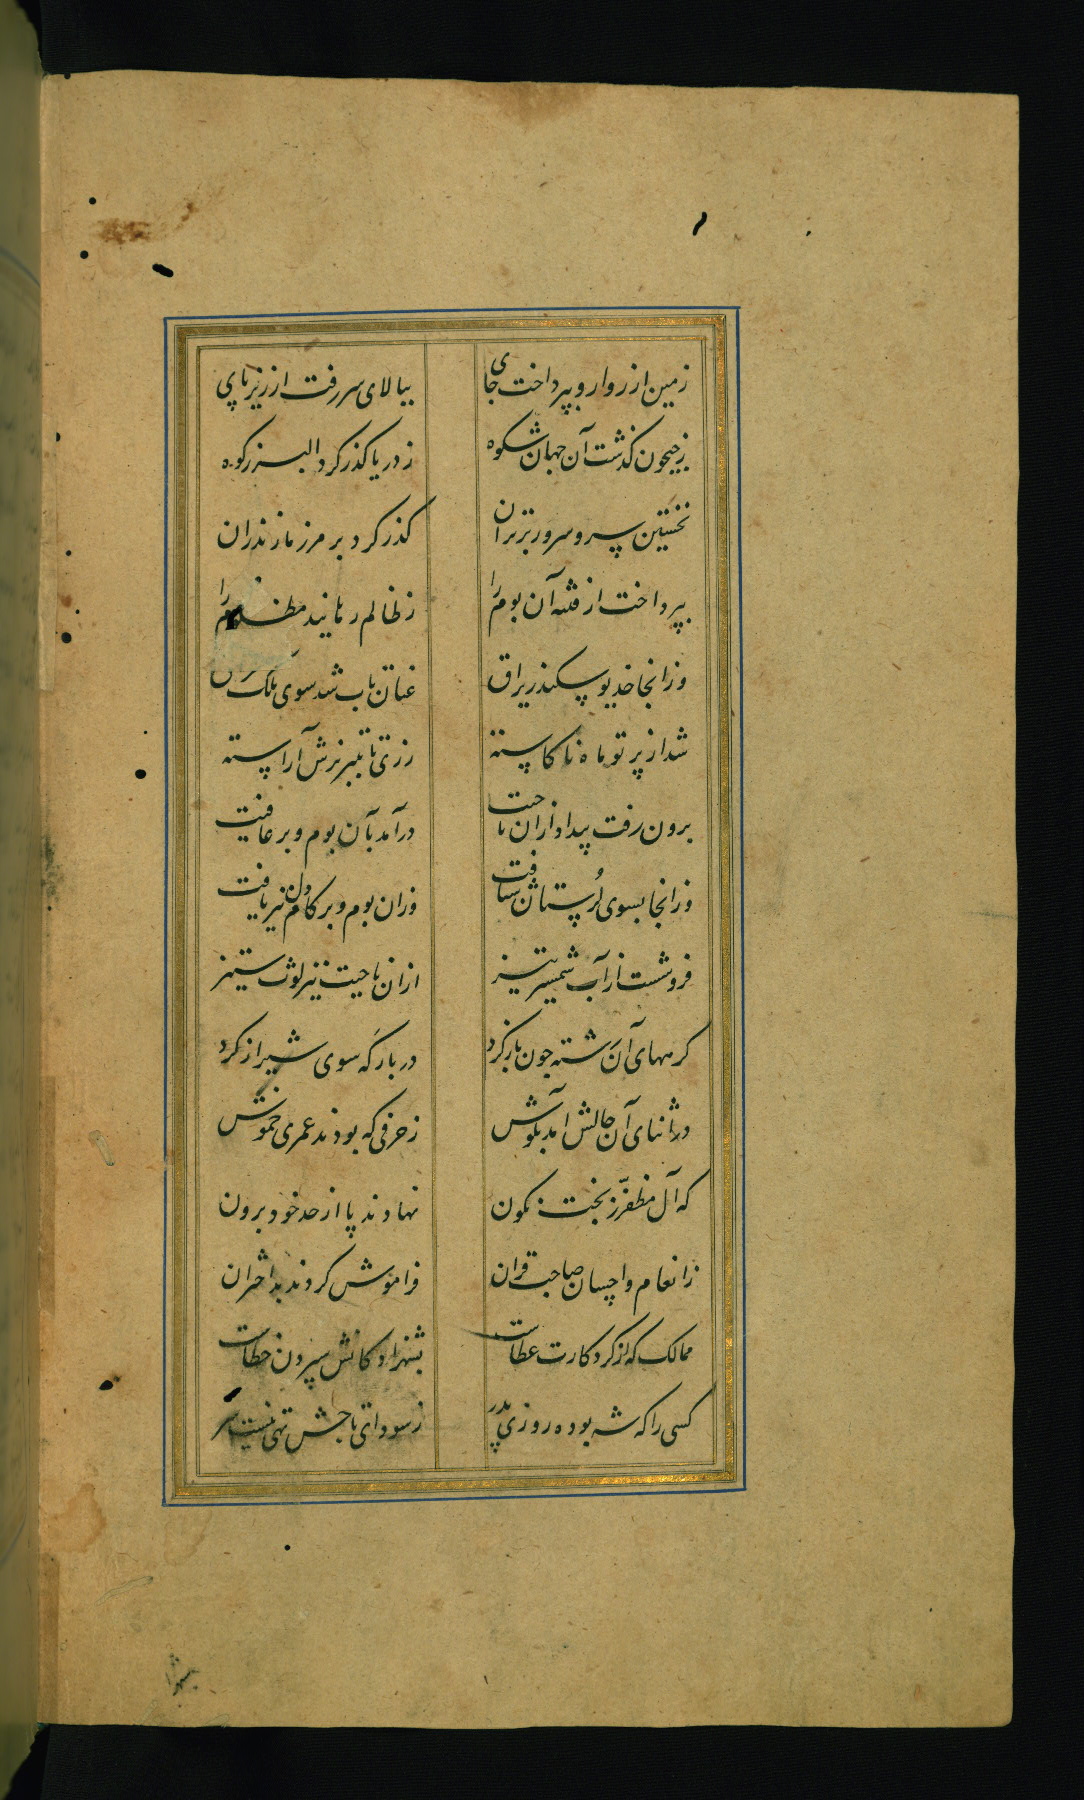 زمین از زوارو بپرداخت جای ببالای سر رفت از زیر پای
ز جیحون گذشت آن جهان شکوه ز دریا گذر کرد البرز کوه
نخستین سر و سرور برتران گذر کرد بر مرز مازندران
بپرداخت از فتنه آن بوم را ز ظالم رهانید مظلوم را
وزانجا خدیو سکندر یراق عنان تاب شد سوی ملک
شد از پرتو ماه ناکاسته ز ری تا بتبریزش آراسته
برون رفت بیداد ازان ناحیت درآمد بآن بوم و بر عافیت
وزانجا بسوی لرستان شتافت وزان بوم و بر کام دل نیز یافت
فروشست از آب شمشیر تیز ازان ناحیت نیز لوث ستیز
کرمهای آن رشته چون باز کرد در بارگه سوی شیراز کرد
در اثنای آن حالش آمد بگوش ز حرفی که بودند عمری خموش
که آل مظفر ز بخت نگون نهادند پا از حد خود برون
ز انعام و احسان صاحب قران فراموش کردند بد اختران
ممالک که از کردکارت عطاست بشهزادگانش سپردن خطاست
کسی را که شه بوده روزی پدر ز سودای تاجش تهی نیست سر